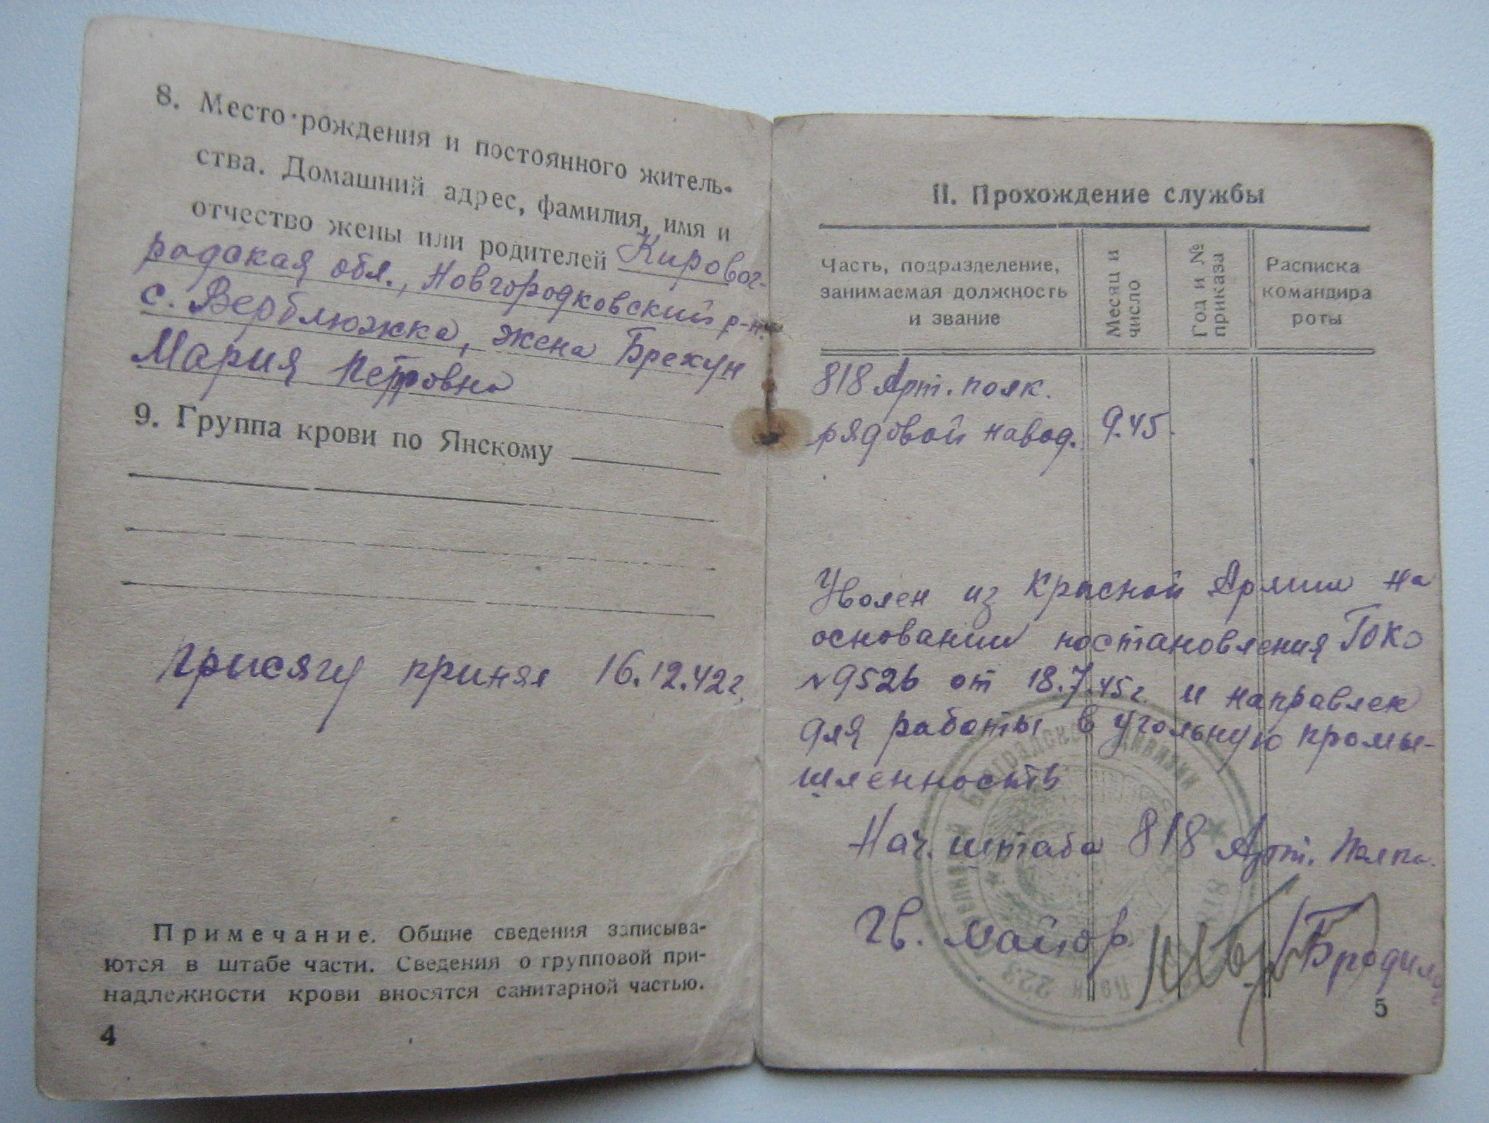 8. Место рождения и постоянного житель-
ства. Домашний адрес, фамилия, имя и
отчество жены или родителей Кировог-
радская обл., Новгородковский р-н.
с. Верблюжка, жена Брехун
Мария Петровна
9. Группа крови по Янскому
Присягу принял 16.12.42г.
Примечание. Общие сведения записыва-
ются в штабе части. Сведения о групповой при-
надлежности крови вносятся санитарной частью.
4
II. Прохождение службы
Часть, подразделение,
занимаемая должность
и звание
Месяц и
число
Год и №
приказа
Расписка
командира
роты
818 Арт. полк.
рядовой навод. 9.45.
Уволен из Красной Армии на
основании постановления ГОКо
№9526 от 18.7.45г. и направлен
для работы в угольную промы-
шленность
Нач. штаба 818 Арт. полка.
Гв. майор
223 Белградской дивизии
818
5